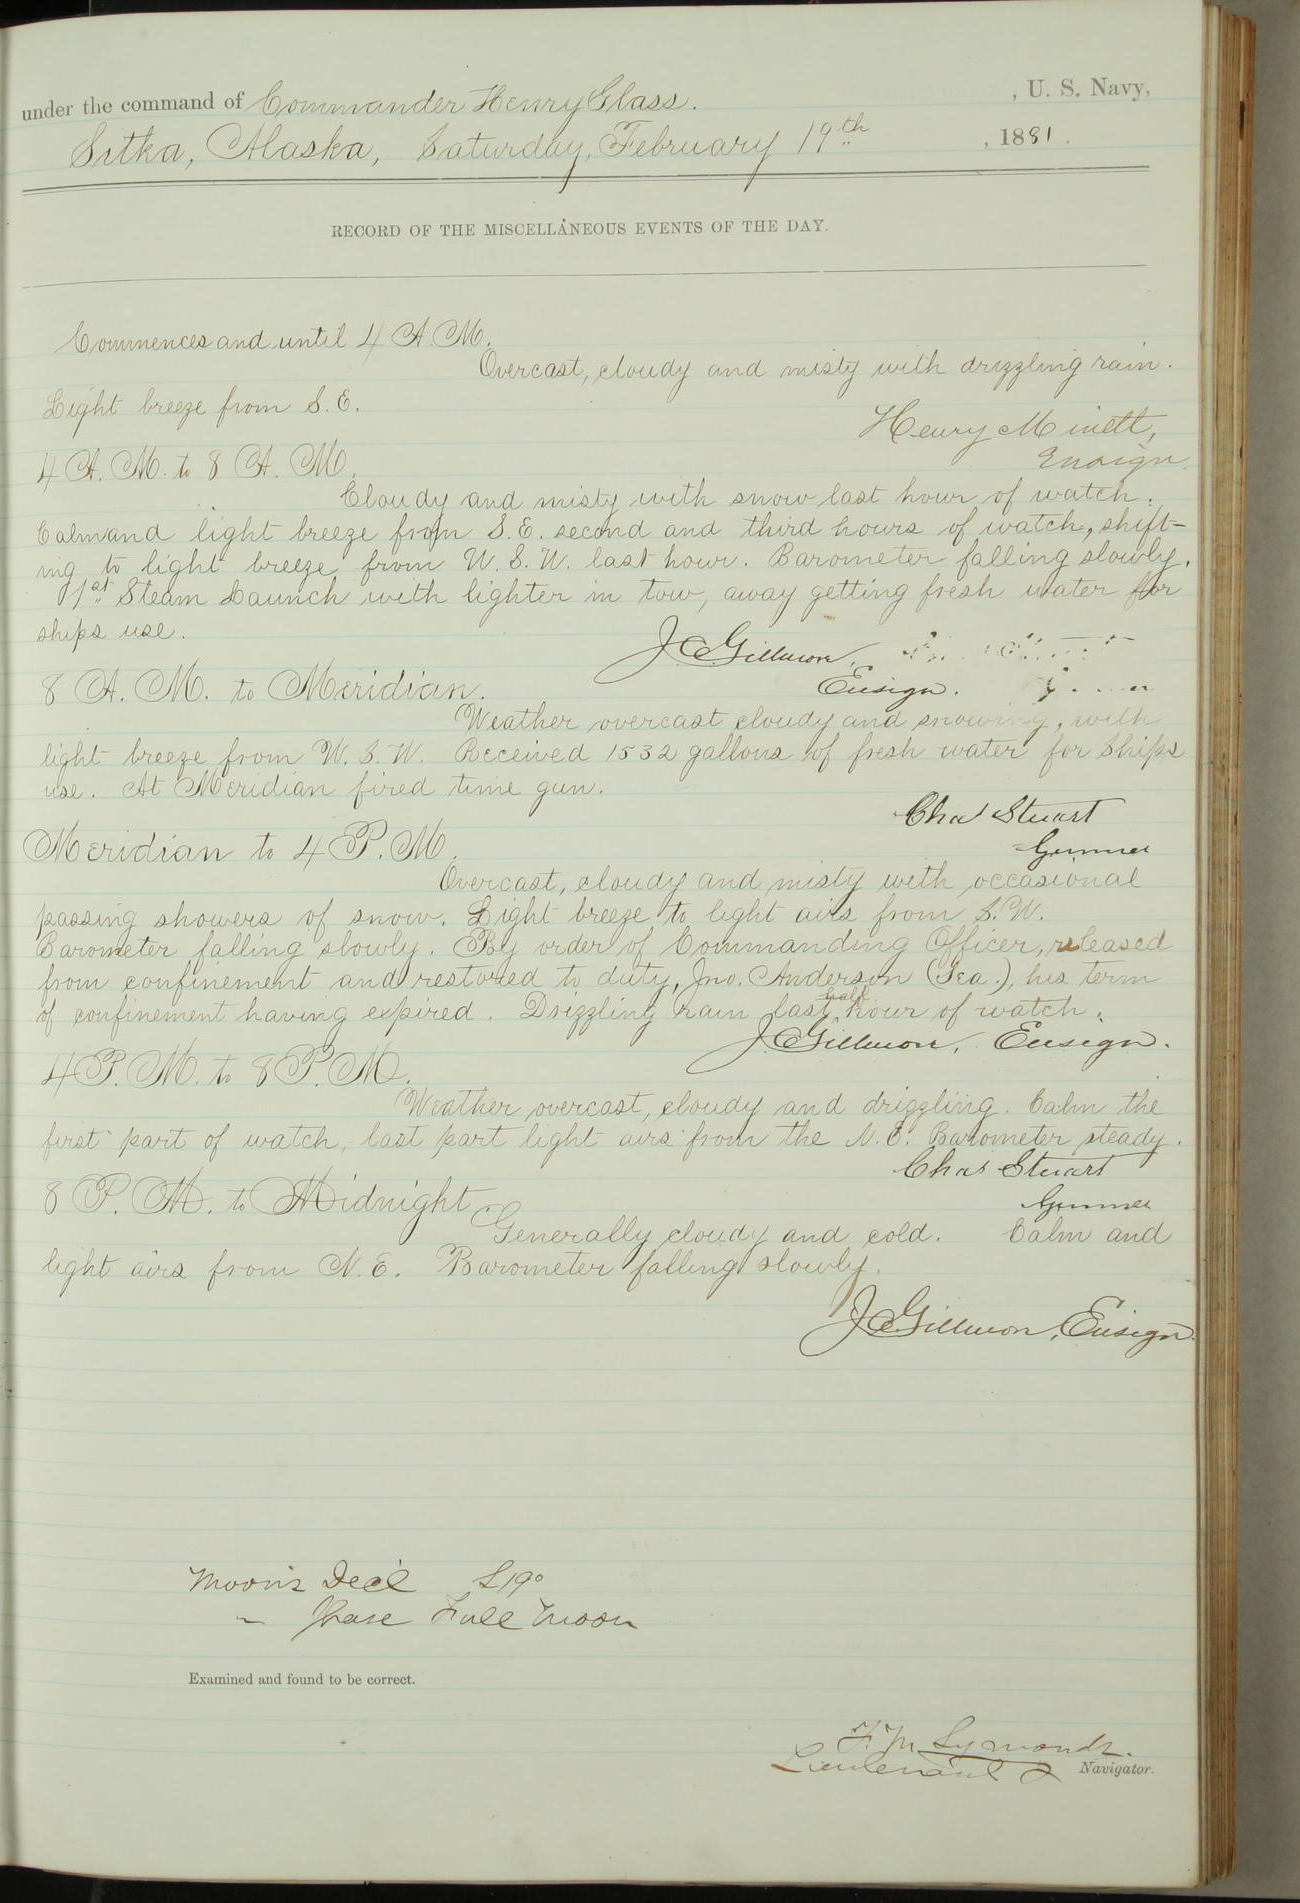 under the command of Commander Henry Glass. , U. S. Navy,
Sitka, Alaska, Saturday, February 19th , 1881.
RECORD OF THE MISCELLANEOUS EVENTS OF THE DAY.
Commences and until 4 A.M.
Overcast, cloudy and misty with drizzling rain.
Light breeze from S.E.
Henry Minett,
Ensign
4 A.M. to 8 A.M.
Cloudy and misty with snow last hour of watch.
Calm and light breeze from S.E. second and third hours of watch, shift-
ing to light breeze from W.S.W. last hour. Barometer falling slowly.
1st Steam Launch with lighter in tow, away getting fresh water for
ships use.
J C Gillmore,
Ensign.
8 A.M. to Meridian.
Weather overcast cloudy and snowing, with
light breeze from W.S.W. Received 1532 gallons of fresh water for Ships
use. At Meridian fired time gun.
Chas Stuart
Gunner
Meridian to 4 P.M.
Overcast, cloudy and misty with occasional
passing showers of snow. Light breeze to light airs from S.W.
Barometer falling slowly. By order of Commanding Officer, released
from confinement and restored to duty, Jno. Anderson (Sea.), his term
of confinement having expired. Drizzling rain last half hour of watch.
J C Gillmore, Ensign.
4 P.M. to 8 P.M.
Weather overcast, cloudy and drizzling. Calm the
first part of watch, last part light airs from the N.E. Barometer steady.
Chas Stuart
Gunner
8 P.M. to Midnight
Generally cloudy and cold. Calm and
light airs from N.E. Barometer falling slowly.
J C Gillmore, Ensign.
Moon's Dec'l S 19°
" Phase Full Moon
Examined and found to be correct.
F. M. Symonds.
Lieutenant & Navigator.